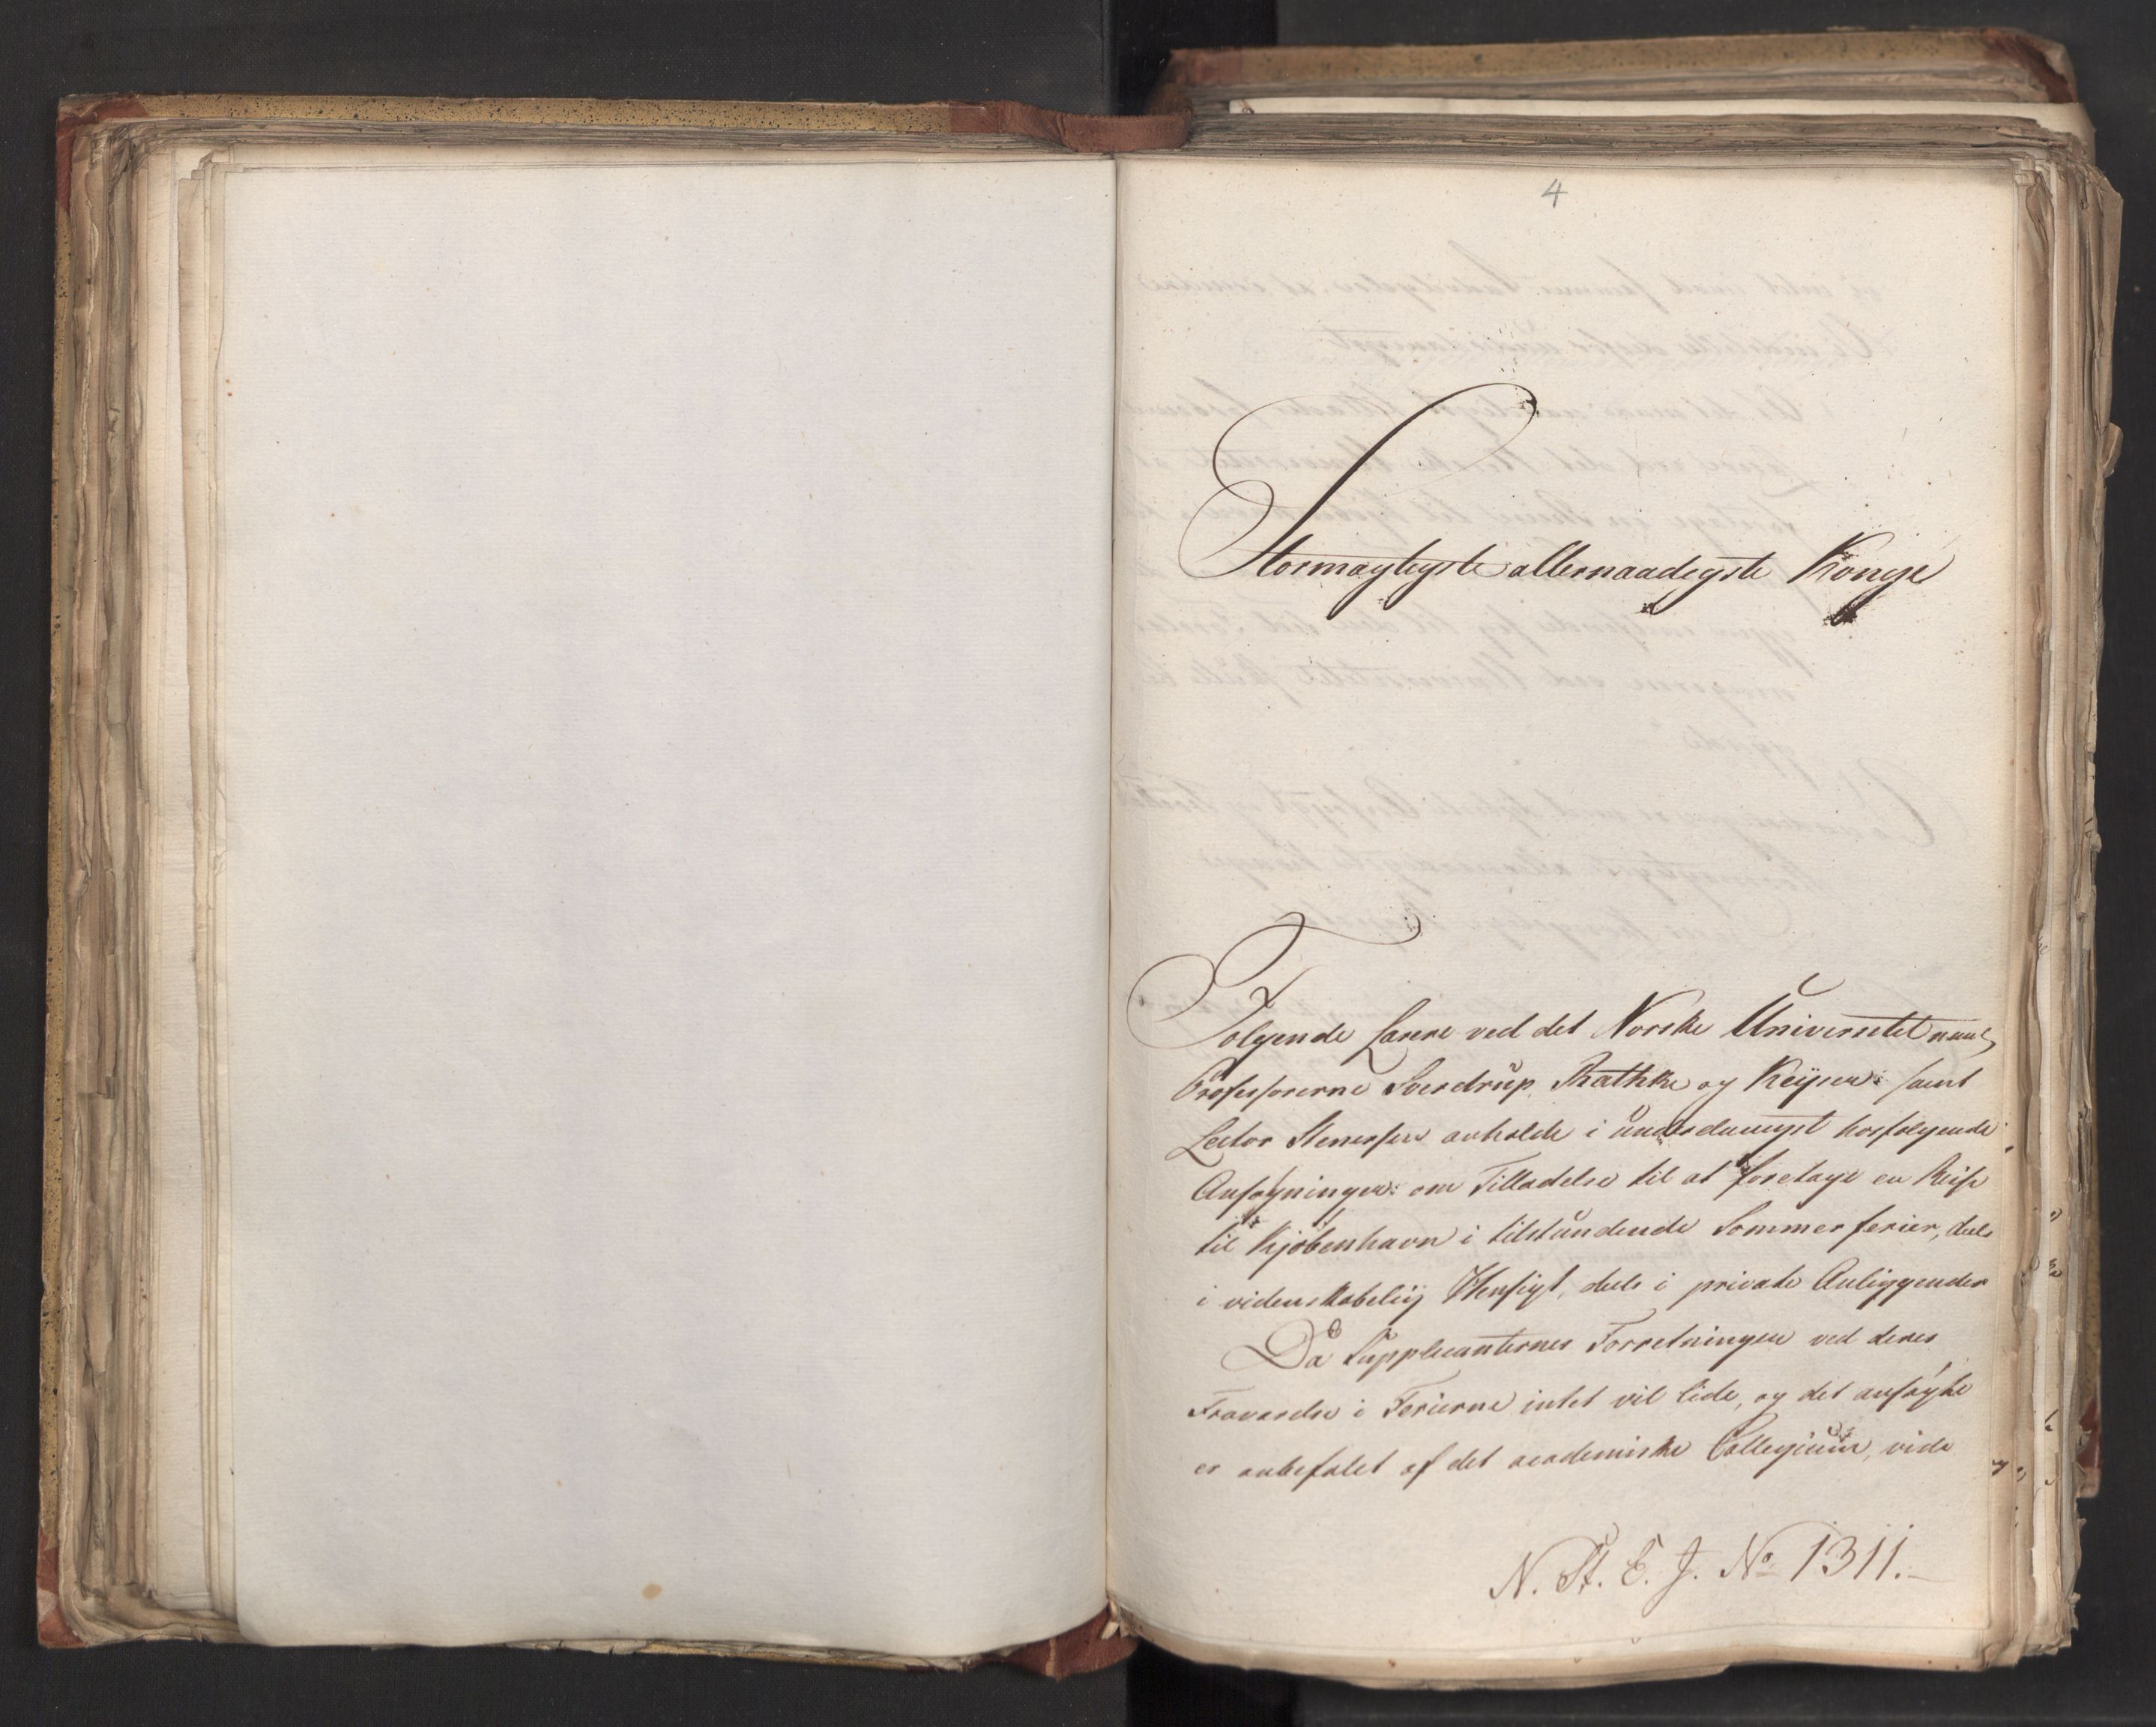 4
Stormægtigste allernaadigste Konge
Følgende Lærere ved det Norske Universitet navnl
Professorerne Sverdrup, Rathke og Keyser samt
Lector Stenersen anholde i underdanigst hosfølgende
Ansøgninger om Tilladelse til at foretage en Reise
til Kjöbenhavn i tilstundende Sommerferier, deels
i videnskabelig Hensigt, deels i private Anliggender
Da Supplicanternes Forretninger ved deres
Fraværelse i Ferierne intet vil lide, og det ansøgte
er anbefalet af det academiske Collegium, vide
N. St. E. J. No 1311.